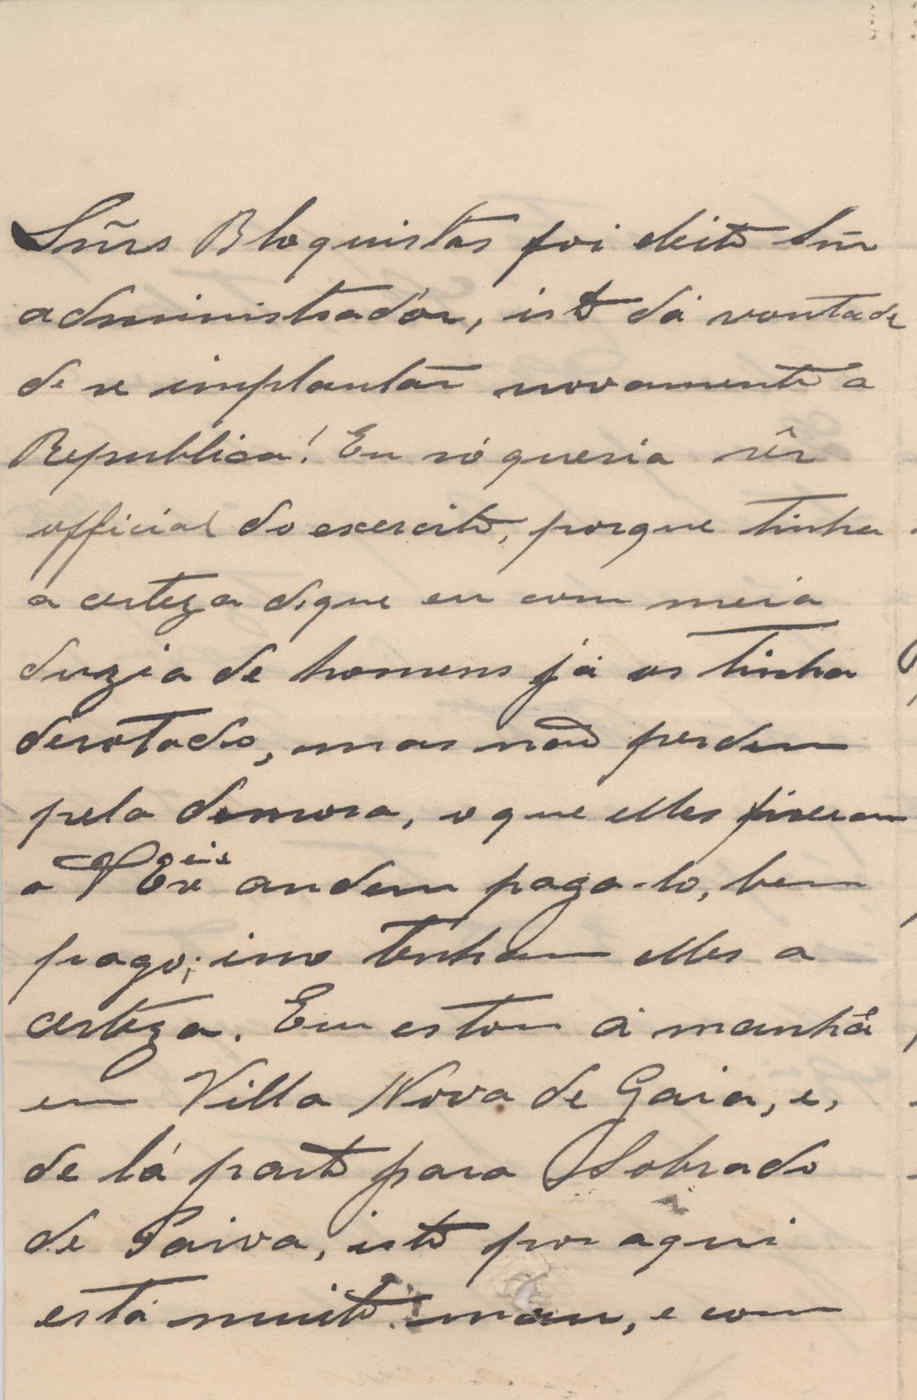 Sñrs Bloquistas foi eleito Sñr
administradôr, isto dá vontade
de se implantar novamente a
Republica! Eu só queria sêr
official do exercito, porque tinha
a certeza de que eu com meia
duzia de homens já os tinha
derotado, mas não perdem
pela demora, o que elles fizeram
a andem paga-lo, bem
pago; isso tenham elles a
certeza. Eu estou á manhã
em Villa Nova de Gaia, e,
de lá parto para Sobrado
de Paiva, isto por aqui
está muito mau, e com